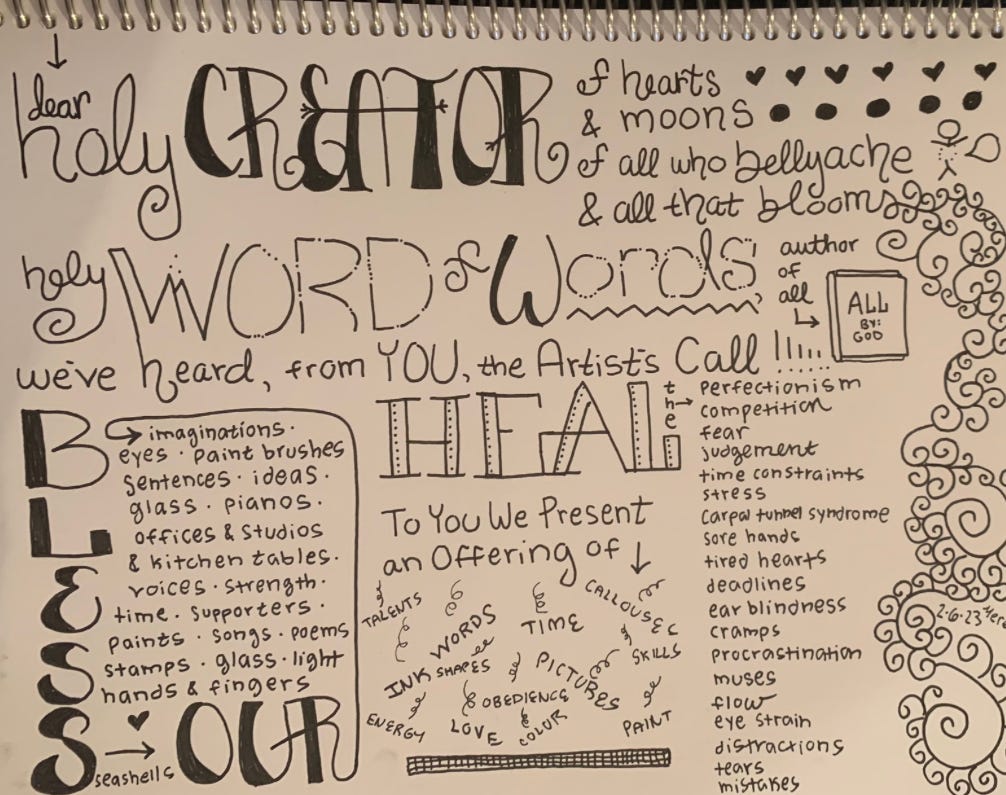 dear
holy CREATOR
of hearts
& moons
of all who bellyache
& all that blooms
holy WORD of Words
author
of
all
ALL
BY:
GOD
we've heard, from YOU, the Artist's Call !!!...
BLESS OUR
imaginations.
eyes · paint brushes
sentences · ideas ·
glass · pianos ·
offices & studios
& kitchen tables.
voices · strength ·
time · supporters ·
paints · songs · poems
stamps · glass · light
hands & fingers
seashells
HEAL
the
perfectionism
competition
fear
judgement
time constraints
stress
carpal tunnel syndrome
sore hands
tired hearts
deadlines
ear blindness
cramps
procrastination
muses
flow
eye strain
distractions
tears
mistakes
To You We Present
an Offering of
TALENTS
WORDS
TIME
CALLOUSES
INK
SHAPES
PICTURES
SKILLS
OBEDIENCE
ENERGY
LOVE
COLOR
PAINT
2-6-23